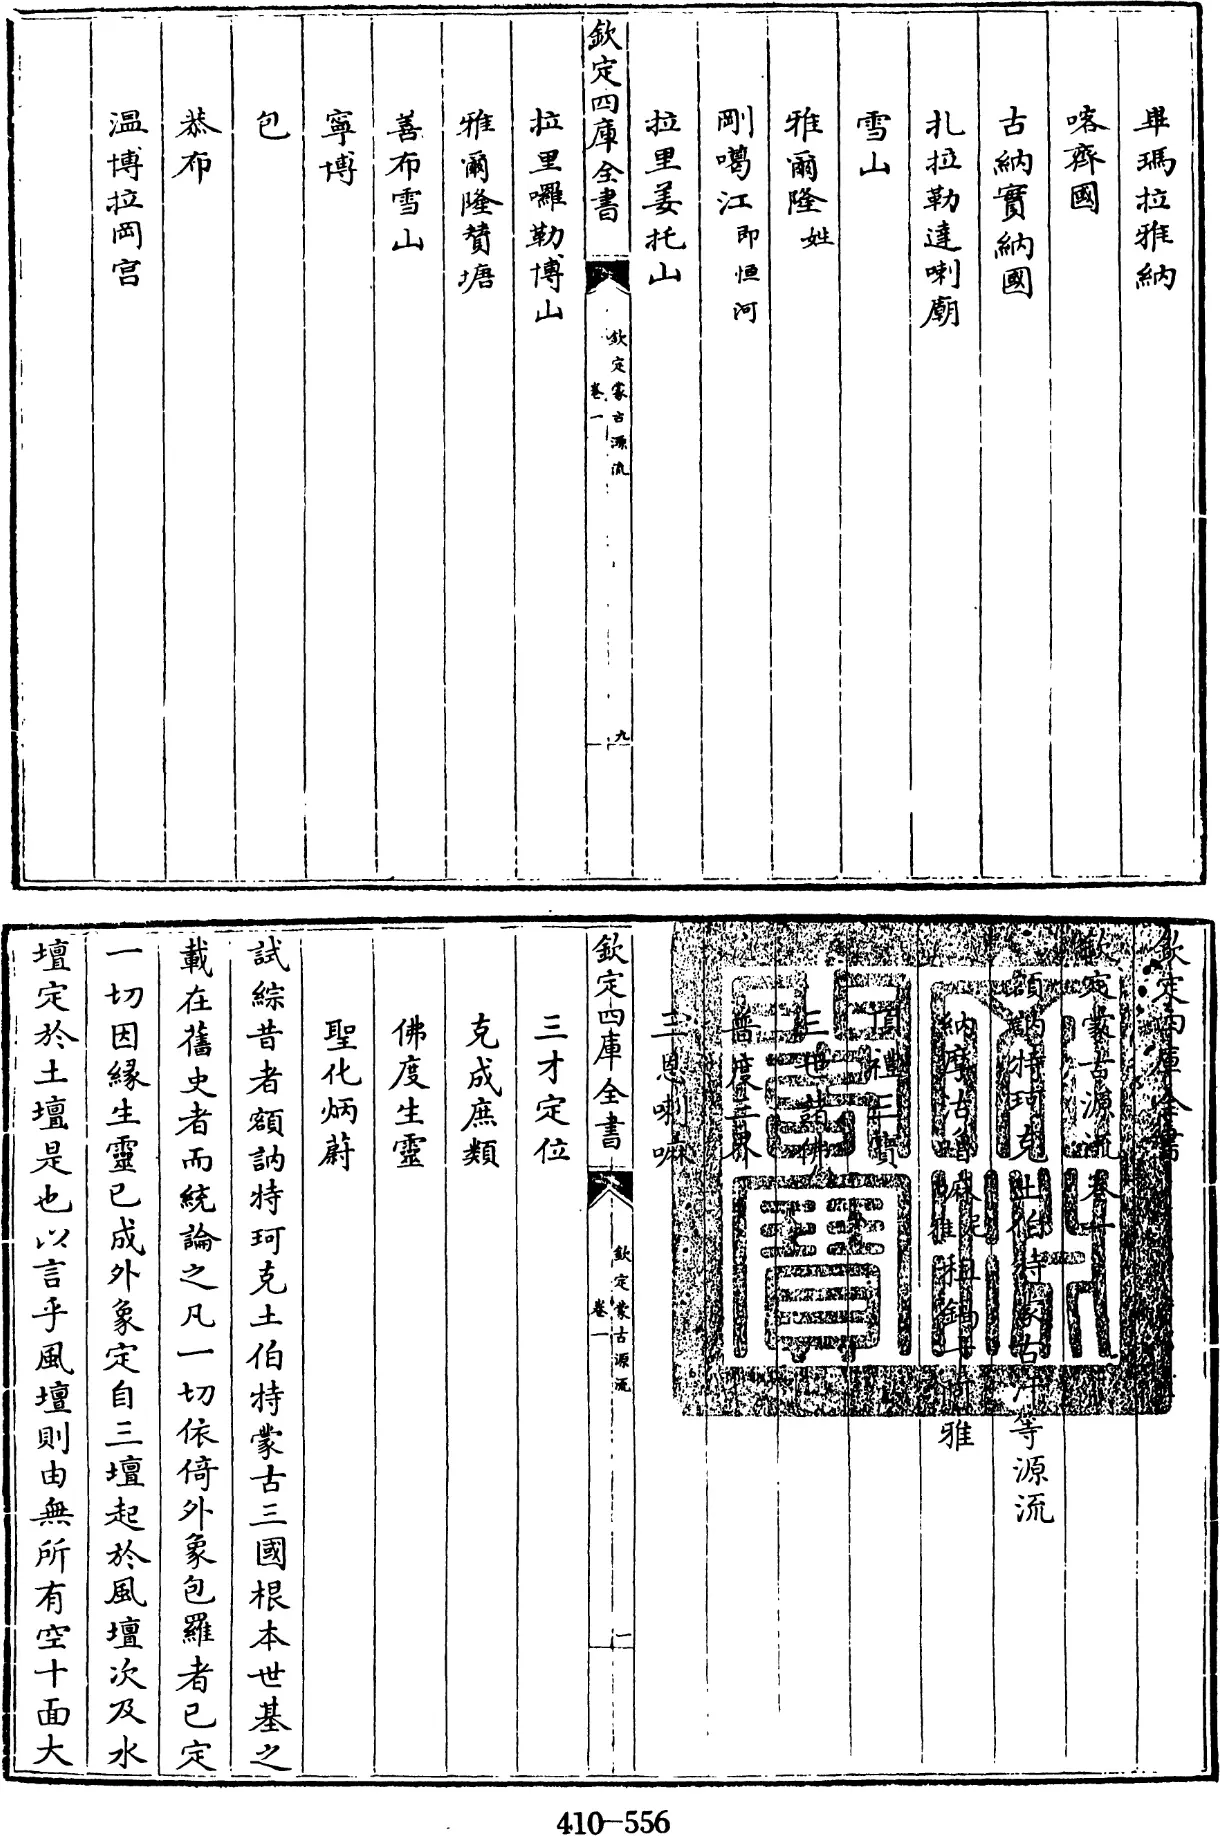 畢瑪拉雅納
喀齊國
古納實納國
扎拉勒達喇廟
雪山
雅爾隆姓
剛噶江即恒河
拉里姜托山
欽定四庫全書
欽定蒙古源流
卷一
九
拉里囉勒博山
雅爾隆贊塘
善布雪山
寧博
包
恭布
溫博拉岡宫
欽定四庫全書
欽定蒙古源流卷一
額訥特珂克土伯特蒙古汗等源流
納摩沽魯
雅
頂禮三寶
三世諸佛
普度三界
三恩喇嘛
欽定四庫全書
欽定蒙古源流
卷一
一
三才定位
克成庶類
佛度生靈
聖化炳蔚
試綜昔者額訥特珂克土伯特蒙古三國根本世基之
載在舊史者而統論之凡一切依倚外象包羅者已定
一切因緣生靈已成外象定自三壇起於風壇次及水
壇定於土壇是也以言乎風壇則由無所有空十面大
410-556